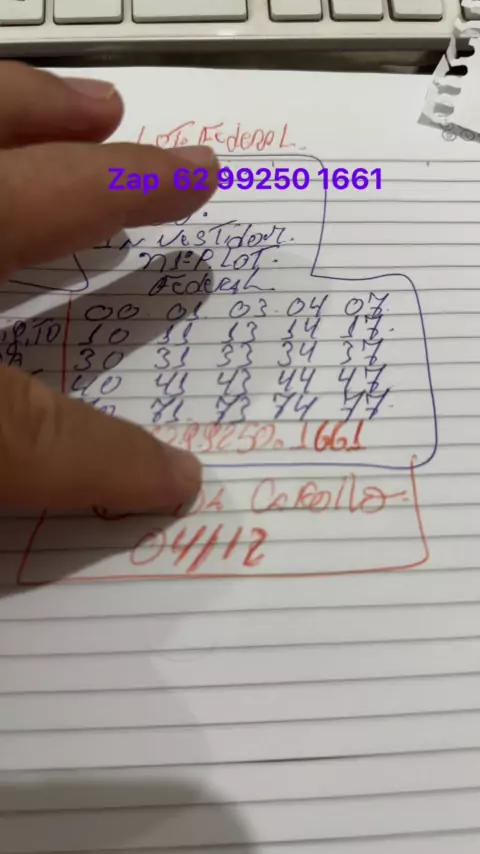 LOT. FEDERAL.
Zap 62 99250 1661
INVESTIDOR.
N 1º P. LOT.
FEDERAL
00. 01. 03. 04 07.
10 11 13 14 17.
30 31 33 34 37
40 41 43 44 47
70 71. 73 74 77.
99250.1661
04/12